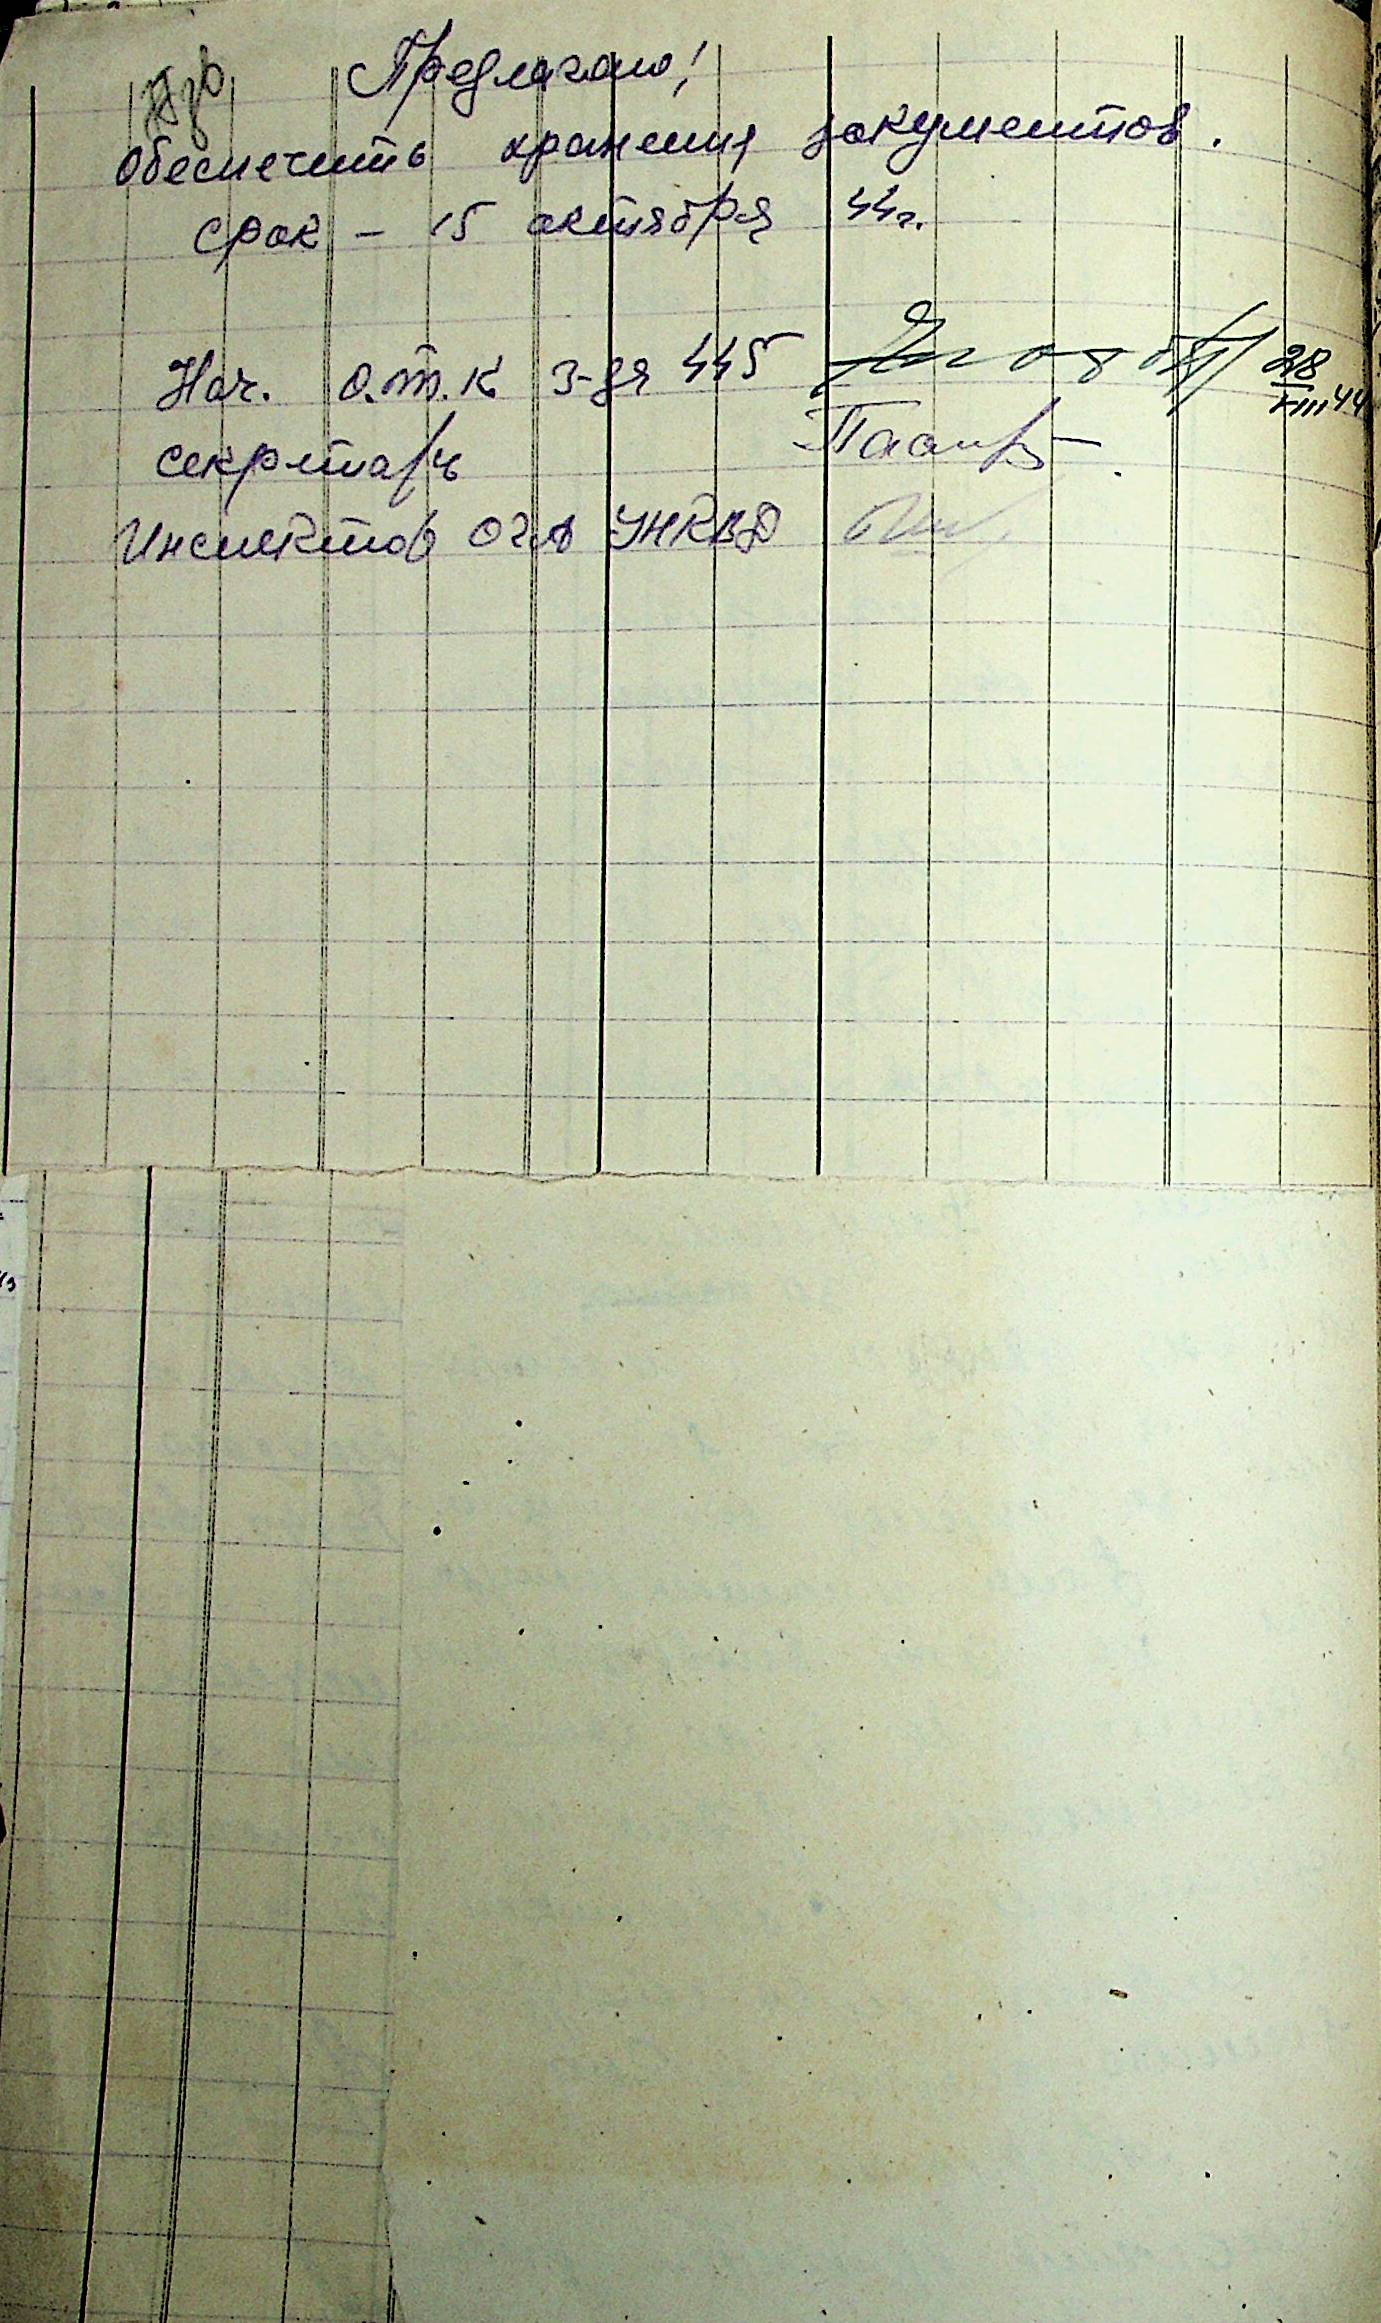 Предлагаю!
обеспечить хранения документов.
срок - 15 октября 44г.
Нач. О.Т.К з-да 445 28/VIII 44
секретарь
Инспектор ОГА УНКВД